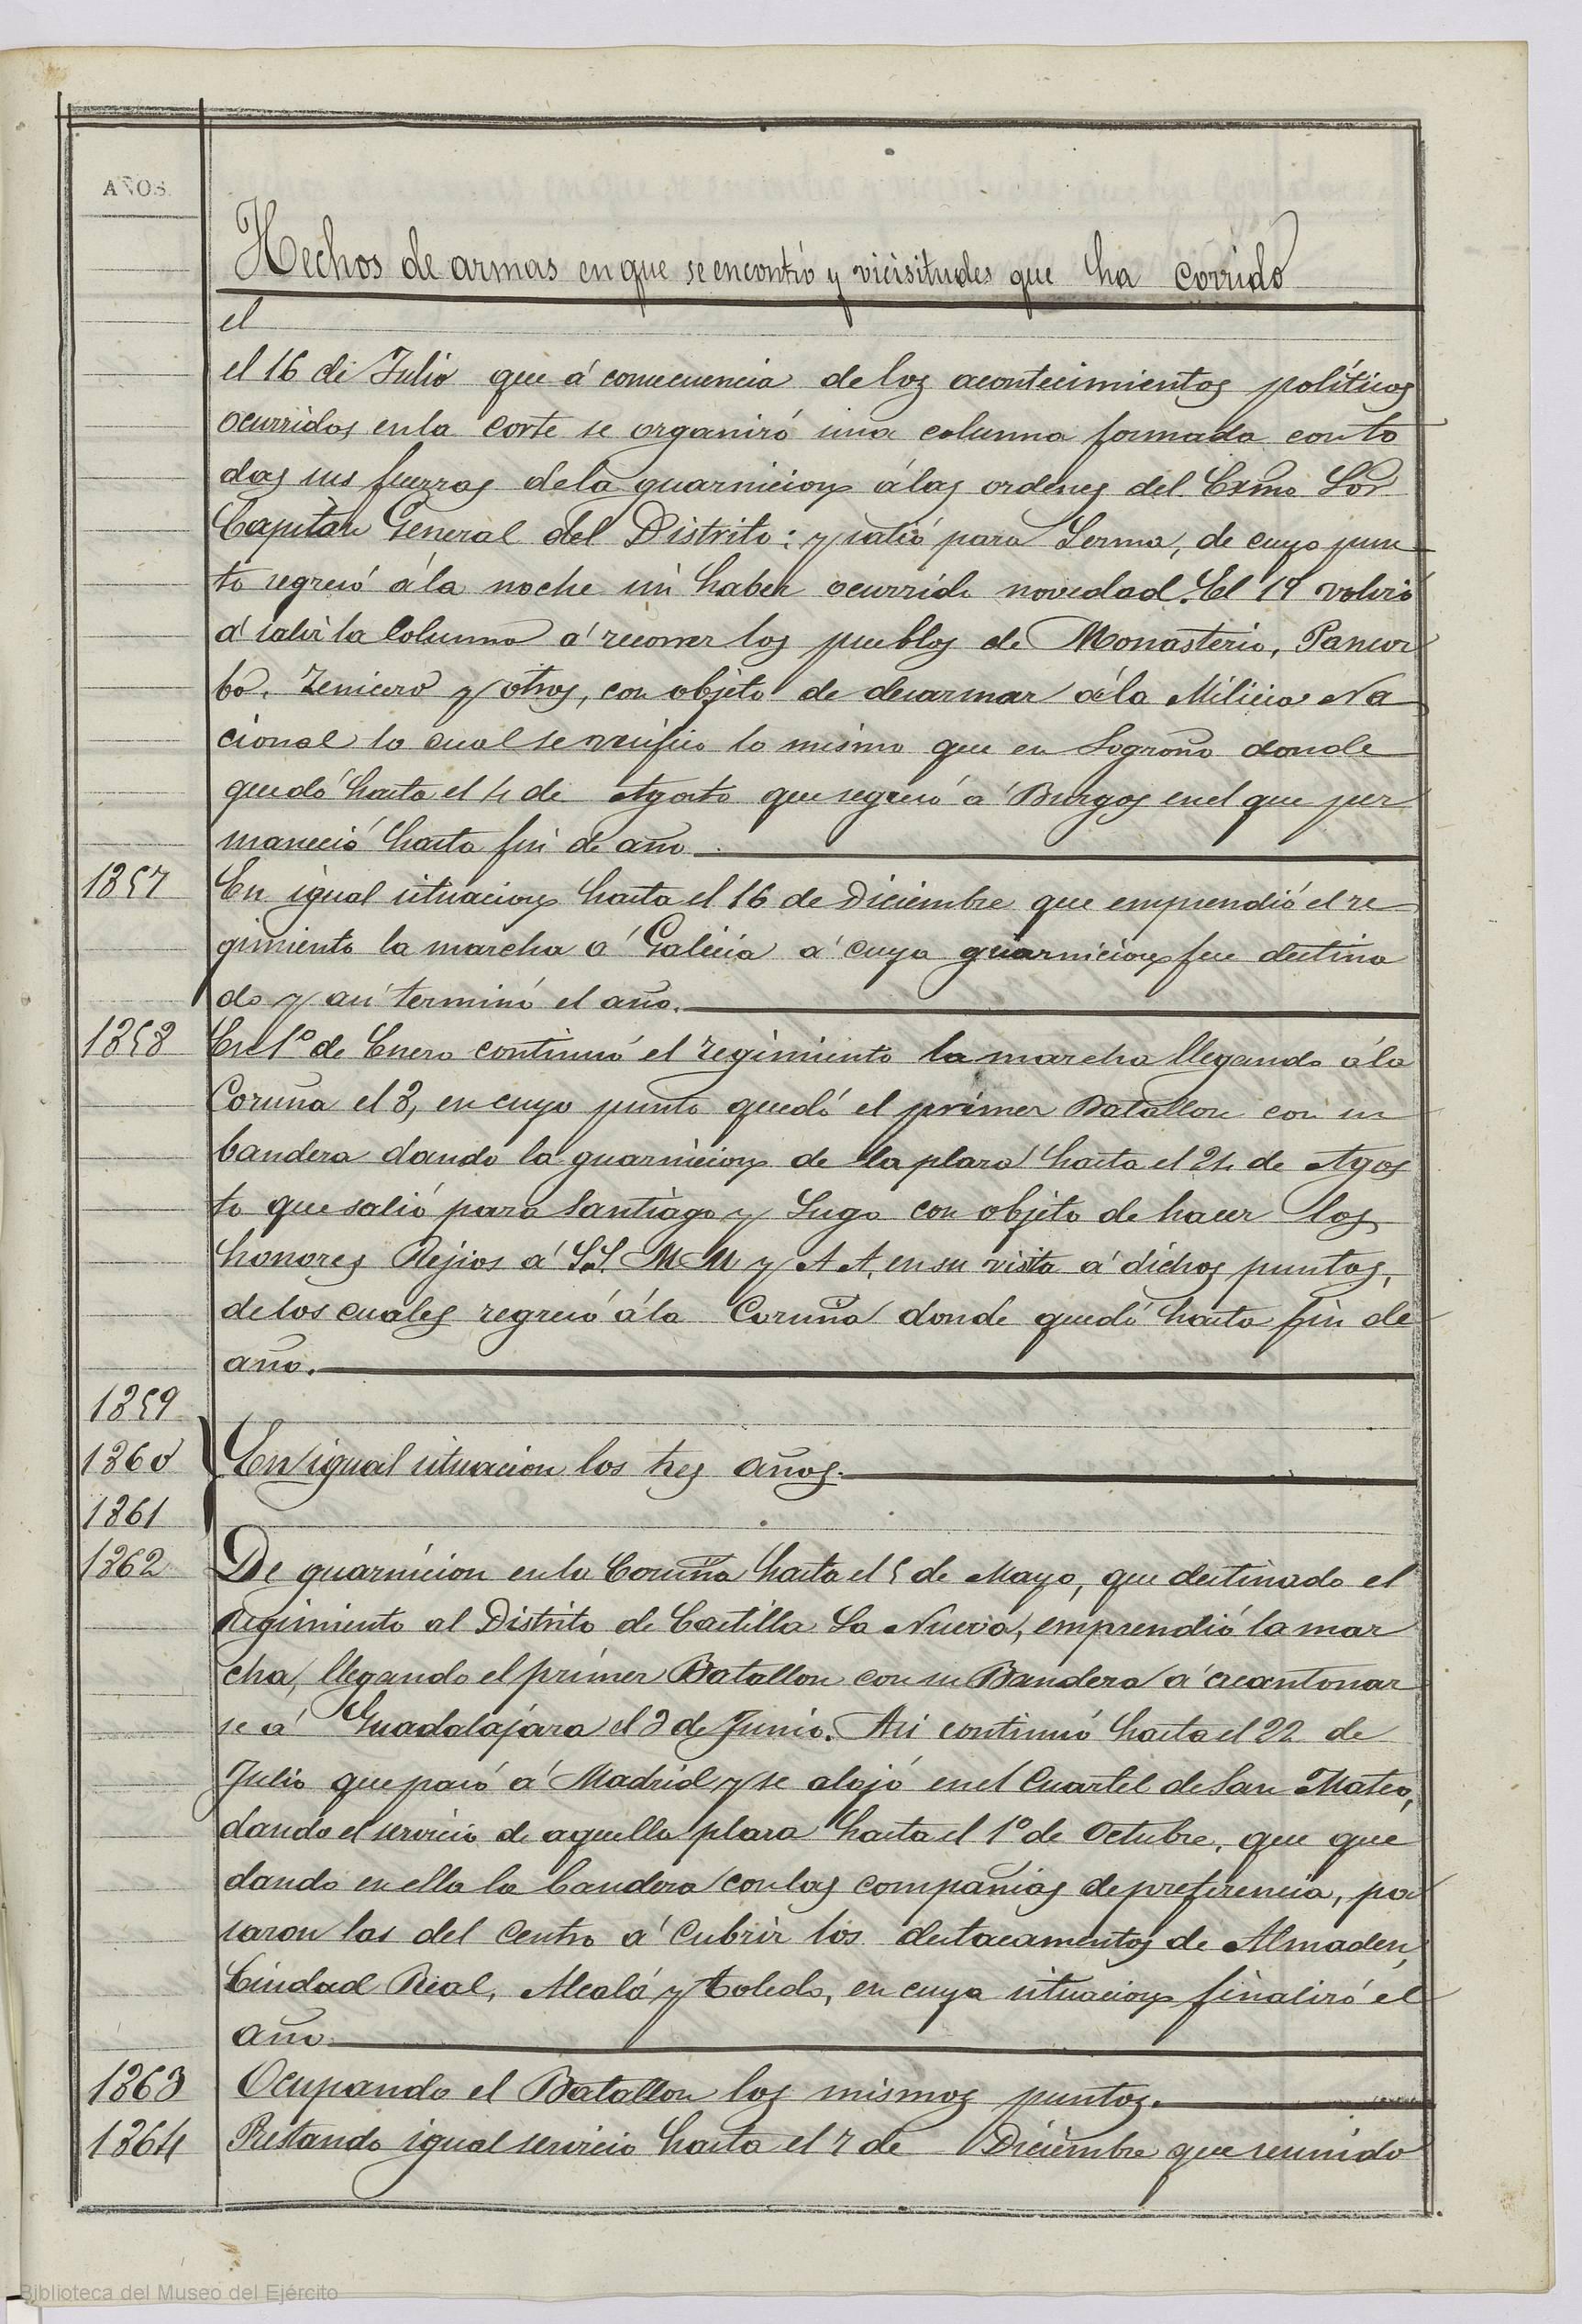 AÑOS.
Hechos de armas en que se encontró y vicisitudes que ha corrido
el
el 16 de Julio que á consecuencia de los acontecimientos políticos
ocurridos en la Corte se organizó una columna formada con to
das sus fuerzas de la guarnicion á las ordenes del Exmo Sor
Capitan General del Distrito: y salió para Lerma, de cuyo pun
to regresó á la noche sin haber ocurrido novedad. El 19 volvió
á salir la Columna á recorrer los pueblos de Monasterio, Pancor
bo, Zenicero y otros, con objeto de desarmar á la Milicia Na
cional lo cual se verificó lo mismo que en Logroño donde
quedó hasta el 4 de Agosto que regresó á Burgos en el que per
maneció hasta fin de año.
1857 En igual situacion hasta el 16 de Diciembre que emprendió el re
gimiento la marcha á Galicia á cuya guarnicion fue destina
do y así terminó el año.
1858 En 1º de Enero continuó el regimiento la marcha llegando á la
Coruña el 8, en cuyo punto quedó el primer Batallon con su
bandera dando la guarnicion de la plaza hasta el 24 de Agos
to que salió para Santiago y Lugo con objeto de hacer los
honores Rejios á S.S. M M y A A. en su visita á dichos puntos,
de los cuales regresó á la Coruña donde quedó hasta fin de
año.
1859
1860 En igual situacion los tres años.
1861
1862 De guarnicion en la Coruña hasta el 5 de Mayo, que destinado el
regimiento al Distrito de Castilla La Nueva, emprendió la mar
cha, llegando el primer Batallon con su Bandera á acantonar
se á Guadalajara el 3 de Junio. Asi continuó hasta el 22 de
Julio que pasó á Madrid y se alojó en el Cuartel de San Mateo,
dando el servicio de aquella plaza hasta el 1º de Octubre, que que
dando en ella la bandera con las compañias de preferencia, pa
saron las del Centro á Cubrir los destacamentos de Almaden,
Ciudad Real, Alcalá y Toledo, en cuya situacion finalizó el
año.
1863 Ocupando el Batallon los mismos puntos.
1864 Prestando igual servicio hasta el 7 de Diciembre que reunido
Biblioteca del Museo del Ejército